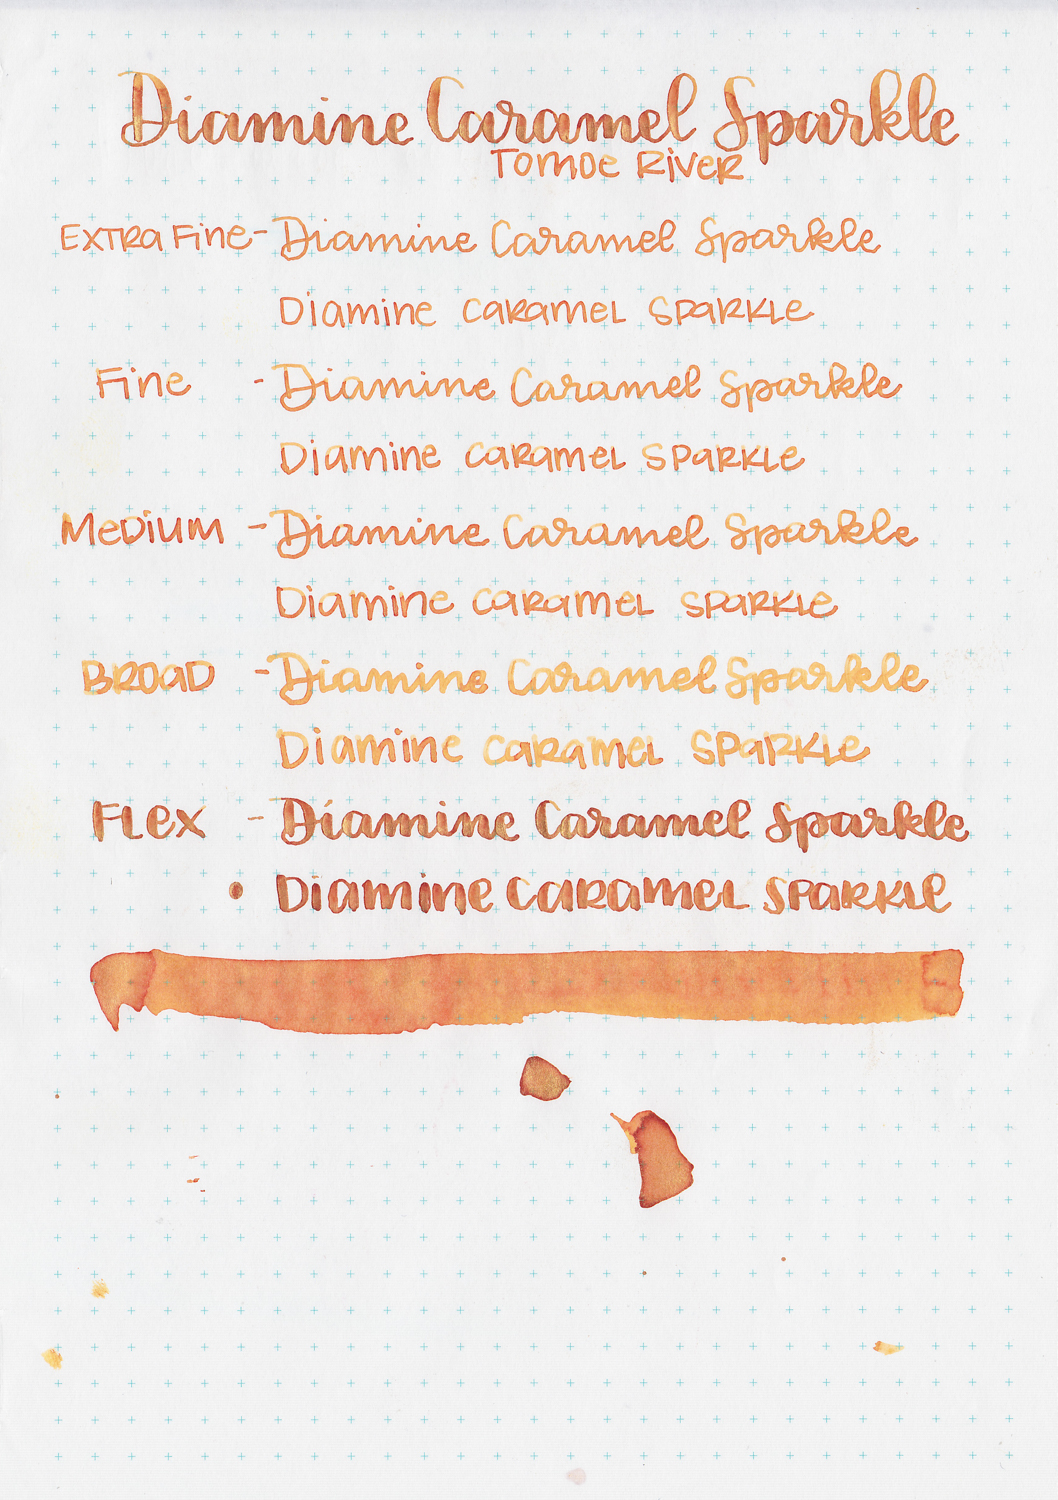 Diamine Caramel Sparkle
Tomoe River
Extra Fine - Diamine Caramel Sparkle
Diamine Caramel Sparkle
Fine - Diamine Caramel Sparkle
Diamine Caramel Sparkle
Medium - Diamine Caramel Sparkle
Diamine Caramel Sparkle
Broad - Diamine Caramel Sparkle
Diamine Caramel Sparkle
Flex - Diamine Caramel Sparkle
• Diamine Caramel Sparkle